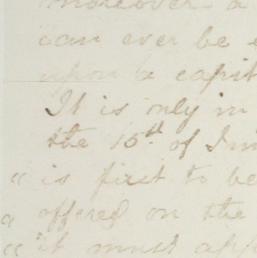 moreover a
can ever be
upon a capit
It is only in
the 15th of Jun
" is first to be
" offered on the
" it must app